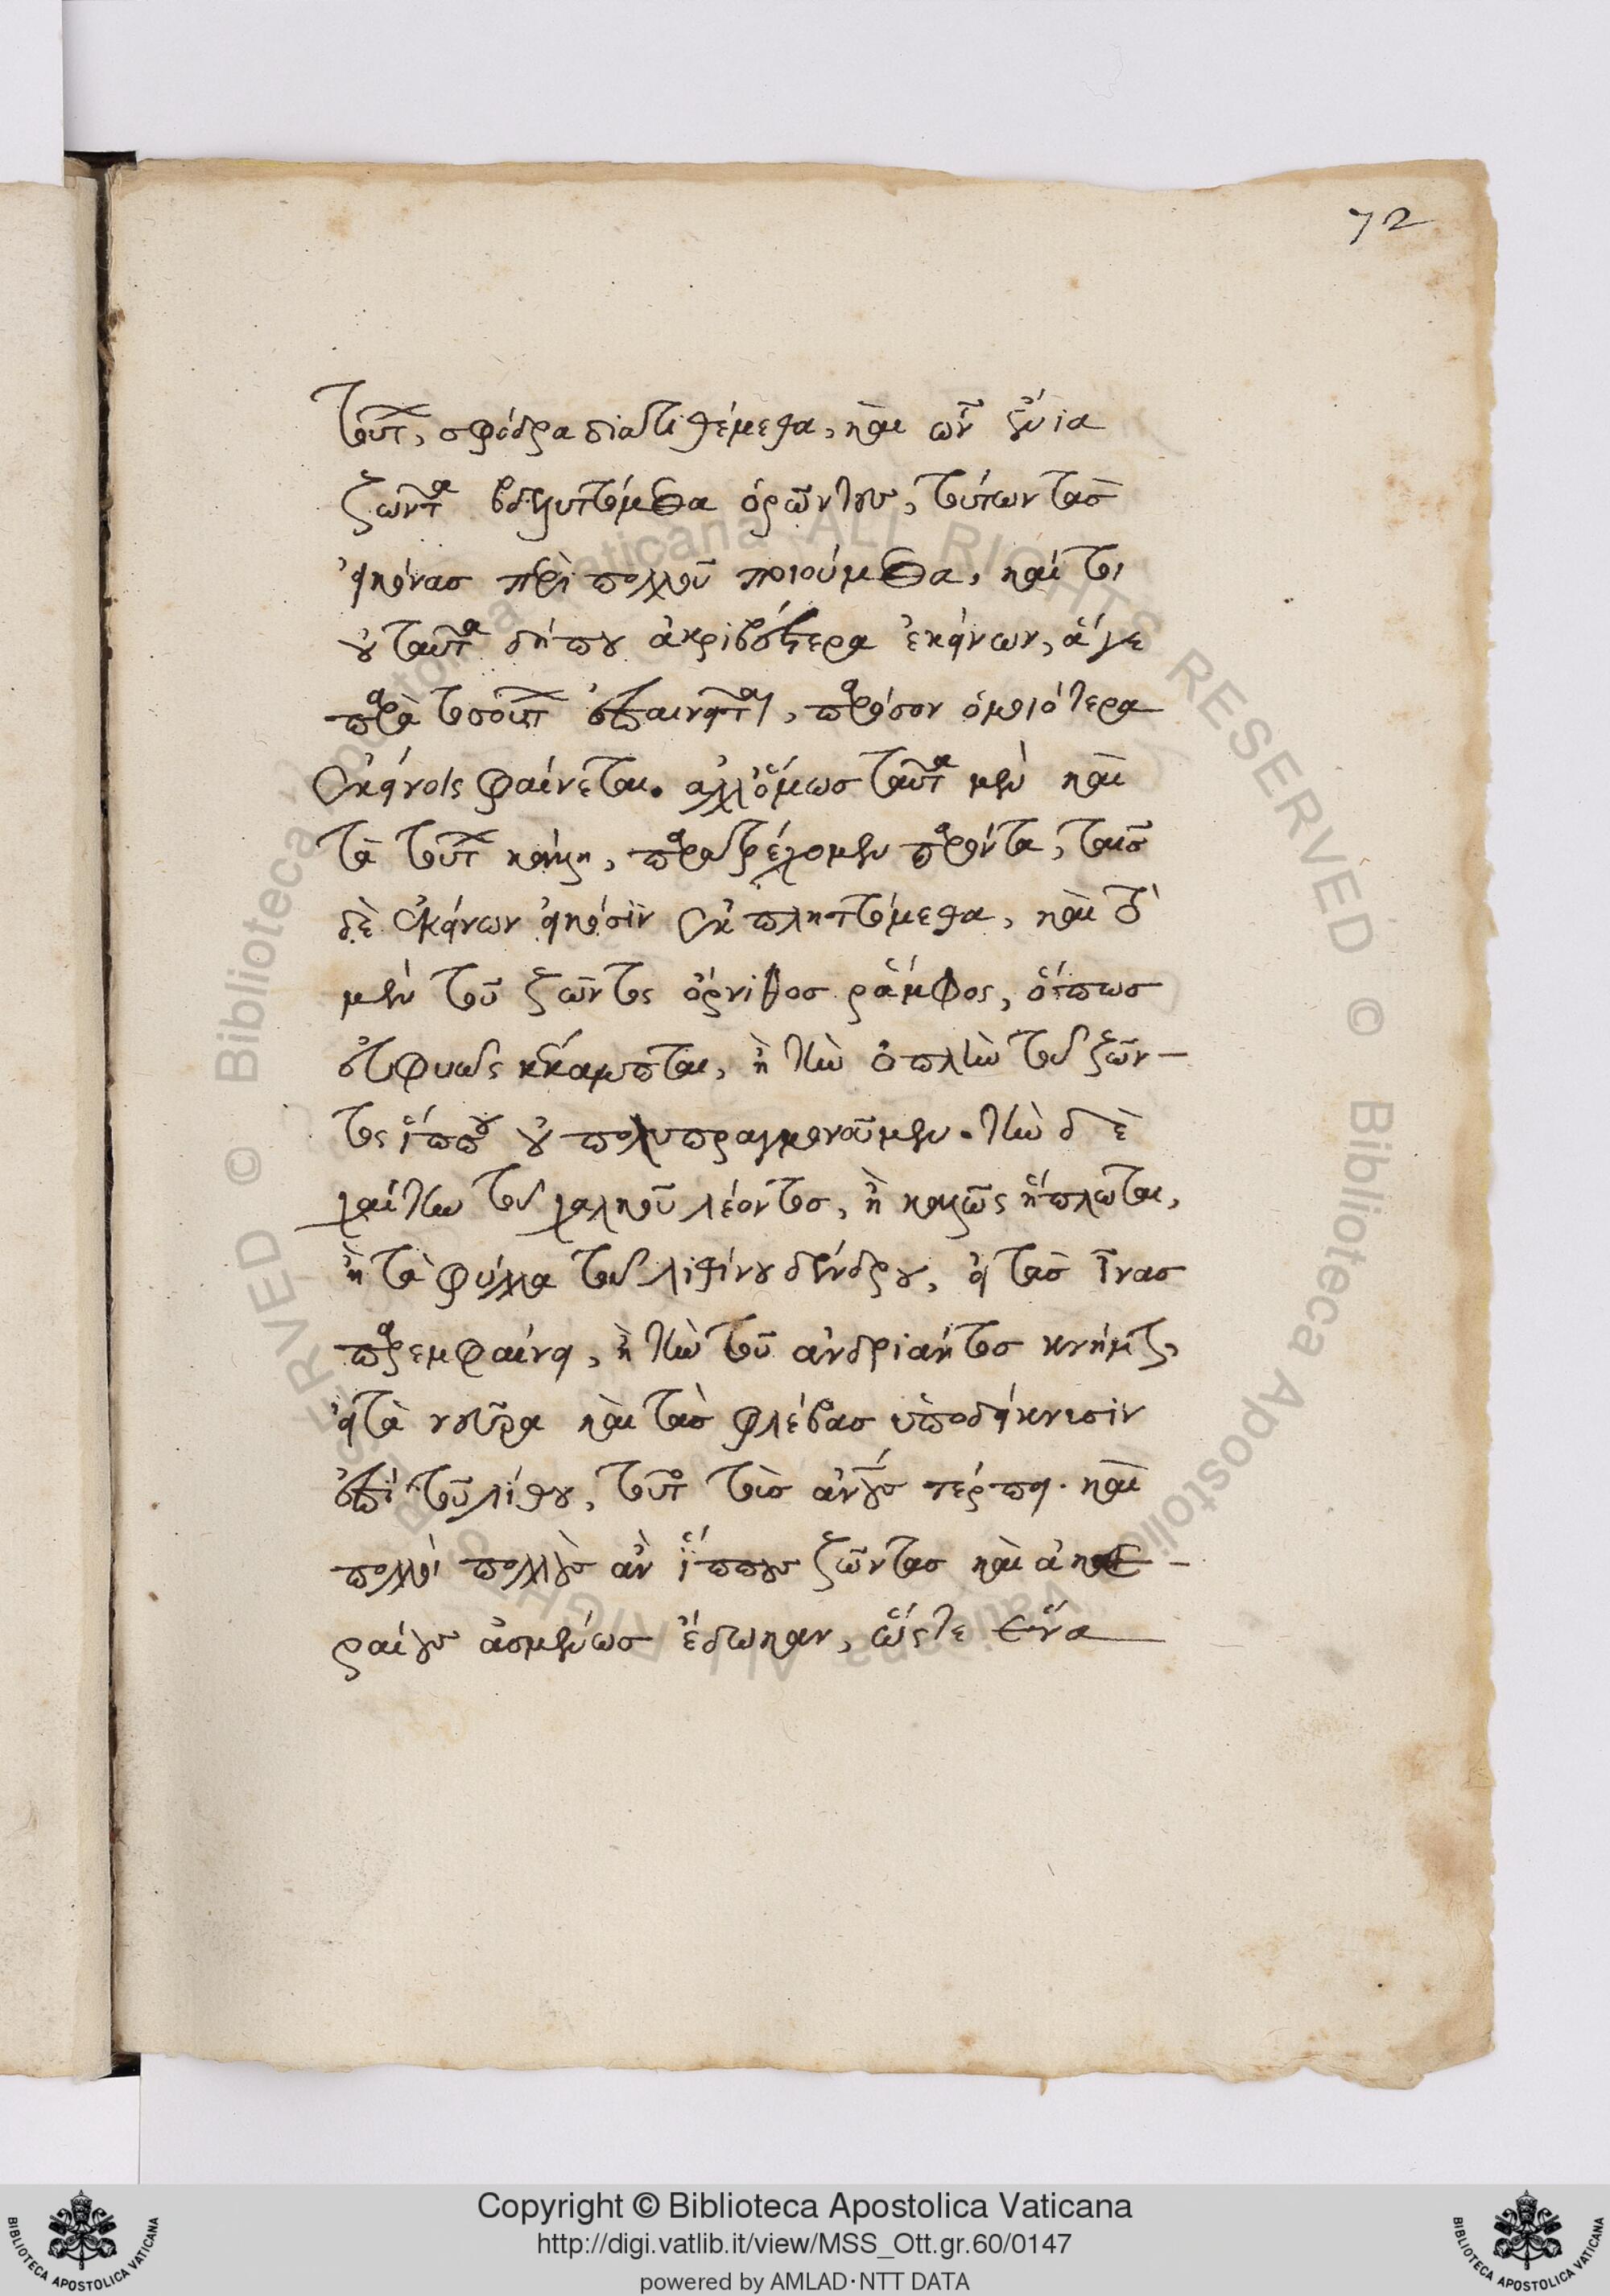 72
τούτων, σφόδρα διατιθέμεθα, καὶ ὧν ἔνια
ζῶντα βδελυττόμεθα ὁρῶντες, τούτων τὰς
εἰκόνας περὶ πολλοῦ ποιούμεθα, καί τι
οὐ ταῦτα δήπου ἀκριβέστερα ἐκείνων, ἅγε
παρὰ τοσοῦτον ἐπαινεῖται, παρόσον ὁμοιότερα
ἐκείνοις φαίνεται. ἀλλ' ὅμως ταῦτα μὲν καὶ
τὰ τούτων κάλλη, παρατρέχομεν παρόντα, ταῖς
δὲ ἐκείνων εἰκόσιν ἐκπληττόμεθα, καὶ τὸ
μὲν τοῦ ζῶντος ὄρνιθος ῥάμφος, ὅπως
εὐφυῶς κέκαμπται, ἢ τὴν ὁπλὴν τοῦ ζῶν-
τος ἵππου οὐ πολυπραγμονοῦμεν. τὴν δὲ
χαίτην τοῦ χαλκοῦ λέοντος, εἰ καλῶς ἥπλωται,
ἢ τὰ φύλλα τοῦ λιθίνου δένδρου, εἰ τὰς ἶνας
παρεμφαίνει, ἢ τὴν τοῦ ἀνδριάντος κνήμην,
εἰ τὰ νεῦρα καὶ τὰς φλέβας ὑποδείκνυσιν
ἐπὶ τοῦ λίθου, τοῦτο τοὺς ἀνθρώπους τέρπει. καὶ
πολλοὶ πολλοὺς ἂν ἵππους ζῶντας καὶ ἀκε-
ραίους ἀσμένως ἔδωκαν, ὥστε ἕνα
Copyright © Biblioteca Apostolica Vaticana
http://digi.vatlib.it/view/MSS_Ott.gr.60/0147
powered by AMLAD·NTT DATA
BIBLIOTECA APOSTOLICA VATICANA
BIBLIOTECA APOSTOLICA VATICANA
© Biblioteca Apostolica Vaticana ALL RIGHTS RESERVED © Biblioteca Apostolica Vaticana ALL RIGHTS RESERVED